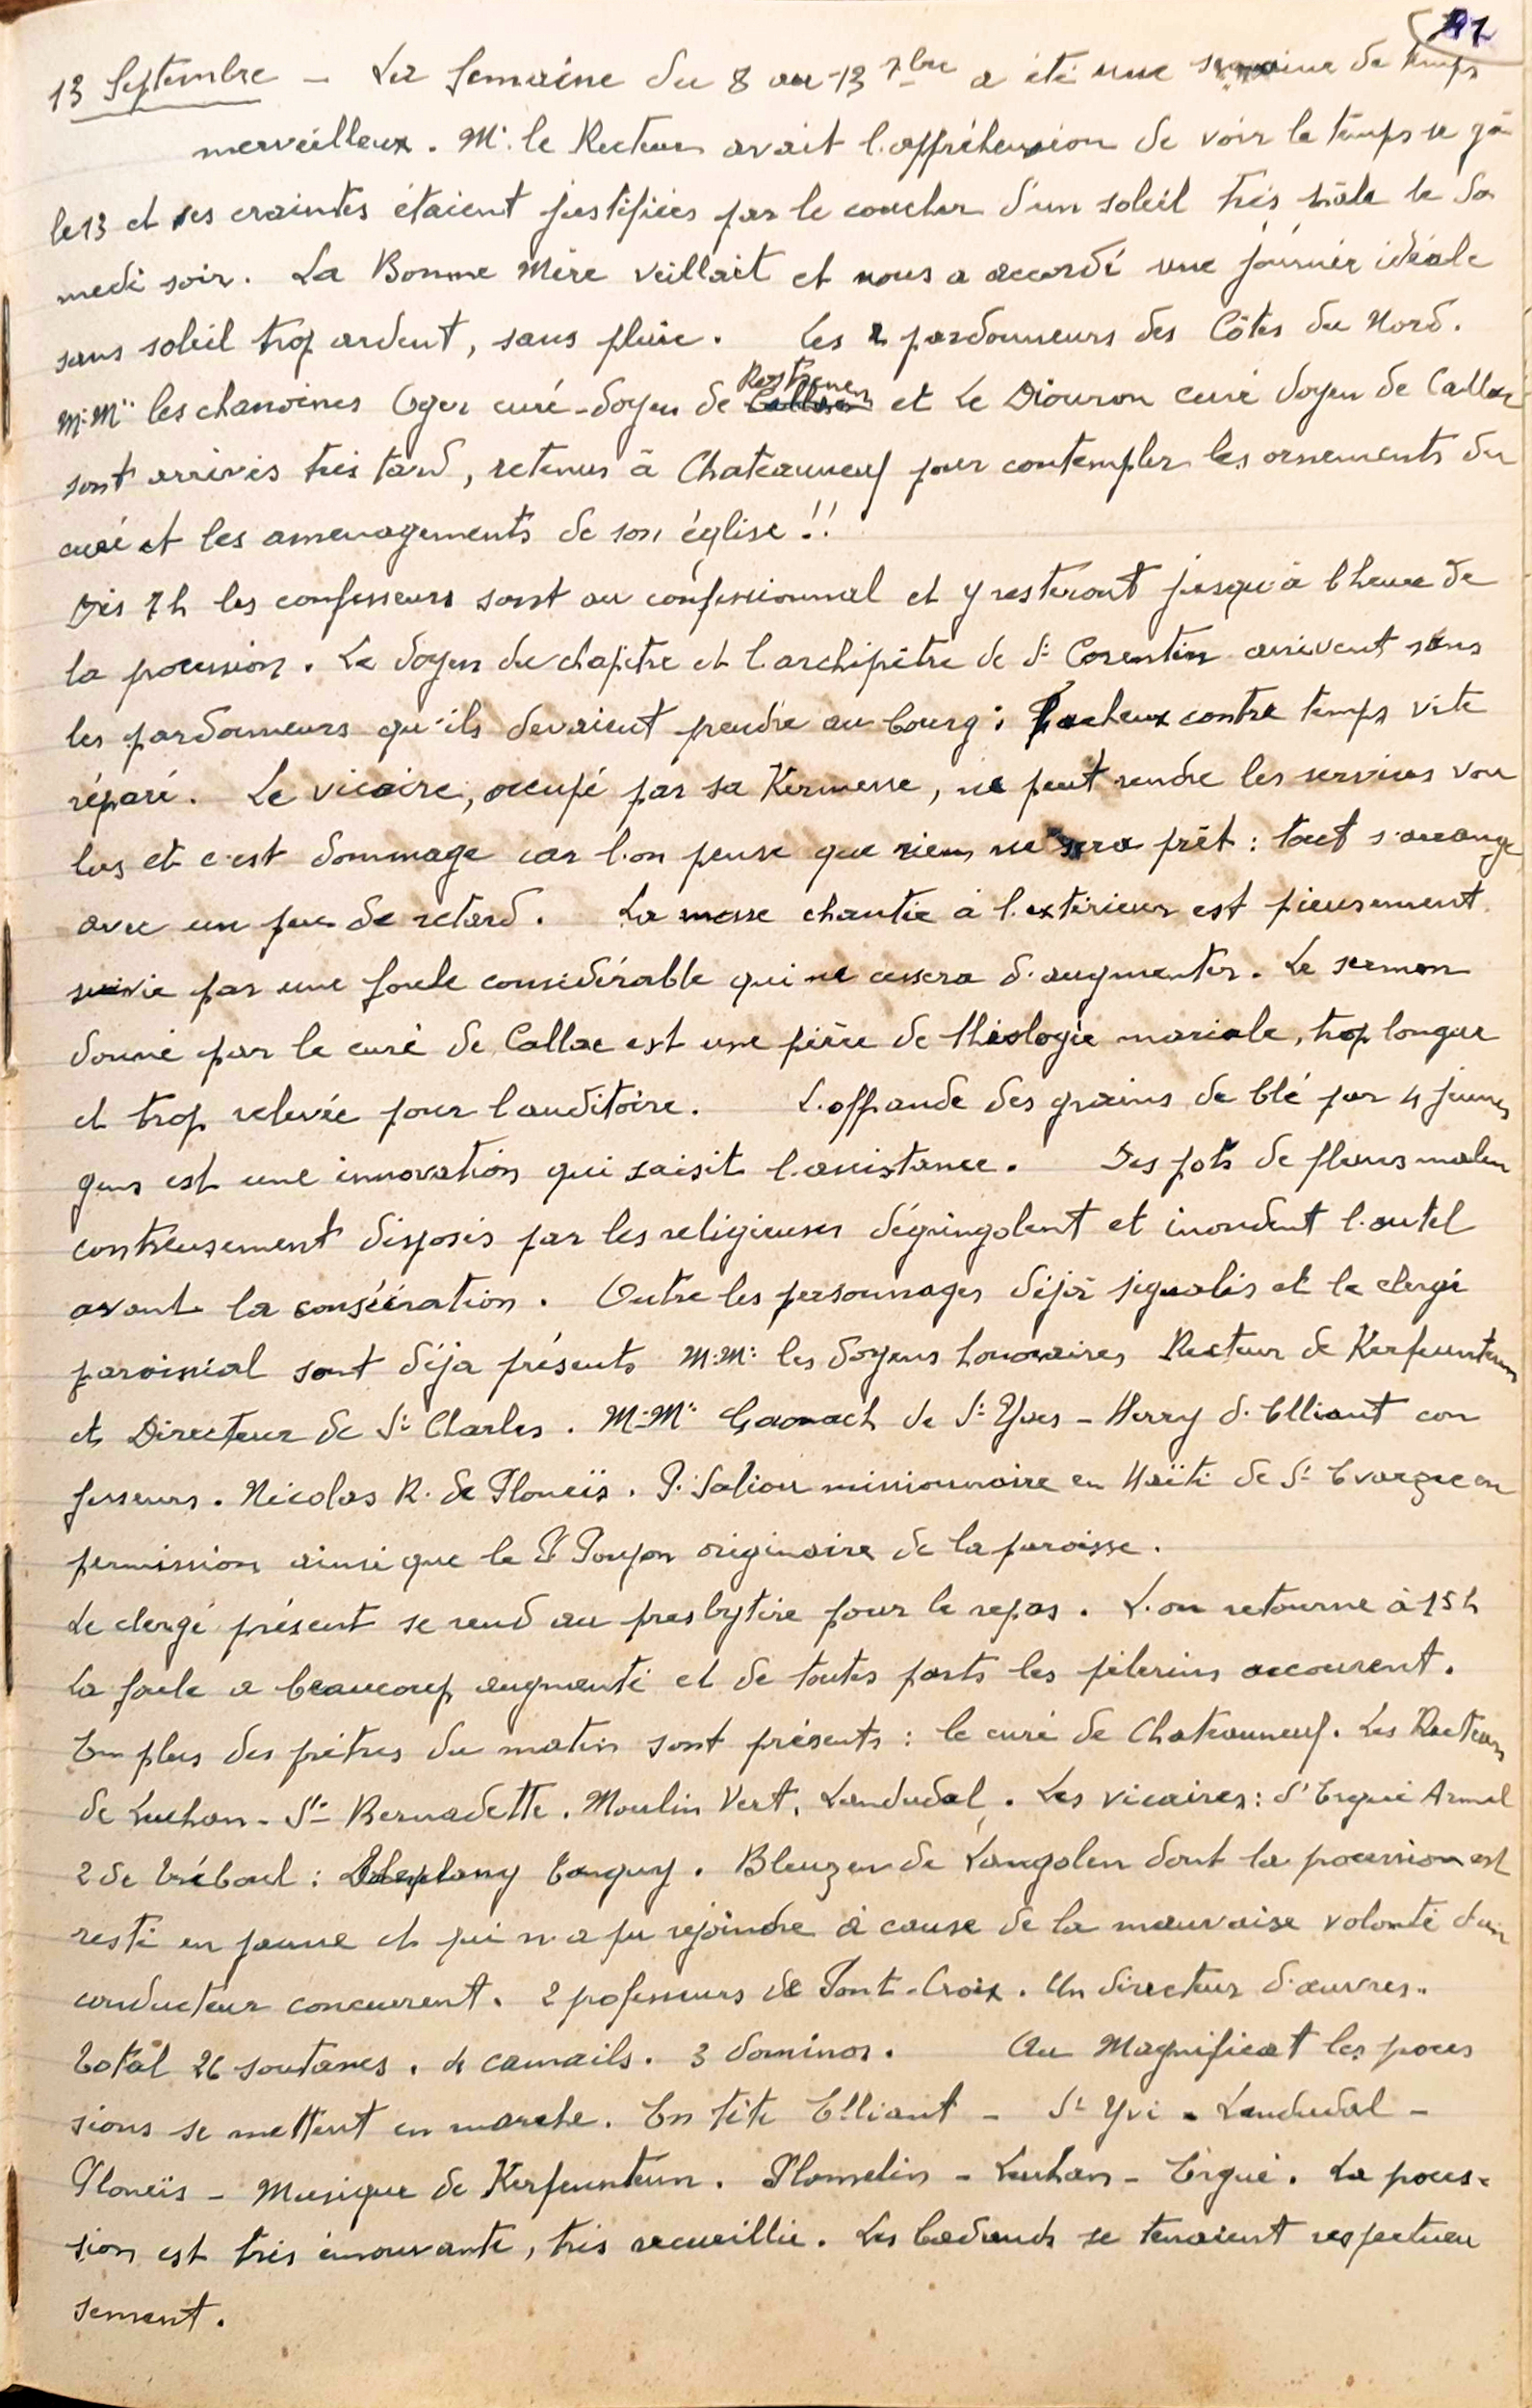 13 Septembre - La Semaine du 8 au 13 7bre a été une semaine de temps
merveilleux. Mr. le Recteur avait l'appréhension de voir le temps se gâ
le 13 et ses craintes étaient justifiées par le coucher d'un soleil très pâle le Sa
medi soir. La Bonne Mère veillait et nous a accordé une journée idéale
sans soleil trop ardent, sans pluie. Les 2 pardonneurs des Côtes du Nord.
M.Mrs les chanoines Oger curé-doyen de Rostrenen et Le Diouron curé doyen de Callac
sont arrivés très tard, retenus à Chateauneuf pour contempler les ornements du
curé et les aménagements de son église !!
Dès 7h les confesseurs sont au confessionnal et y resteront jusqu'à l'heure de
la procession. Le doyen du chapître et l'archiprêtre de St Corentin arrivent sans
les pardonneurs qu'ils devaient prendre au bourg : facheux contre temps vite
réparé. Le vicaire, occupé par sa Kermesse, ne peut rendre les services vou
lus et c'est dommage car l'on pense que rien ne sera prêt : tout s'arrange
avec un peu de retard. La messe chantée à l'extérieur est pieusement
suivie par une foule considérable qui ne cessera d'augmenter. Le sermon
donné par le curé de Callac est une pièce de théologie mariale, trop longue
et trop relevée pour l'auditoire. L'offrande des grains de blé par 4 jeunes
gens est une innovation qui saisit l'assistance. Des pots de fleurs malen
contreusement disposés par les religieuses dégringolent et inondent l'autel
avant la consécration. Outre les personnages déjà signalés et le clergé
paroissial sont déja présents M.M. les doyens honoraires, Recteur de Kerfeunteun
et Directeur de St Charles. M.Mrs Gaonach de St Yves - Herry d'Elliant con
fesseurs. Nicolas R. de Plonéïs. P. Saliou missionnaire en Haïti de St Evarzec en
permission ainsi que le P. Poupon originaire de la paroisse.
Le clergé présent se rend au presbytère pour le repas. L'on retourne à 15h
La foule a beaucoup augmenté et de toutes parts les pèlerins accourent.
En plus des prêtres du matin sont présents : le curé de Chateauneuf. Les Recteurs
de Leuhan - Ste Bernadette. Moulin Vert, Landudal. Les vicaires: d'Ergué Armel
2 de Tréboul : Tanguy. Bleuzen de Langolen dont la procession est
resté en panne et qui n'a pu rejoindre à cause de la mauvaise volonté d'un
conducteur concurrent. 2 professeurs de Pont-Croix. Un directeur d'œuvres.
Total 26 soutanes. 4 camails. 3 dominos. Au Magnificat les proces
sions se mettent en marche. En tête Elliant - St Yvi - Landudal -
Plonéïs - Musique de Kerfeunteun. Plomelin - Leuhan - Ergué. La proces-
sion est très émouvante, très recueillie. Les badauds se tenaient respectueu
sement.